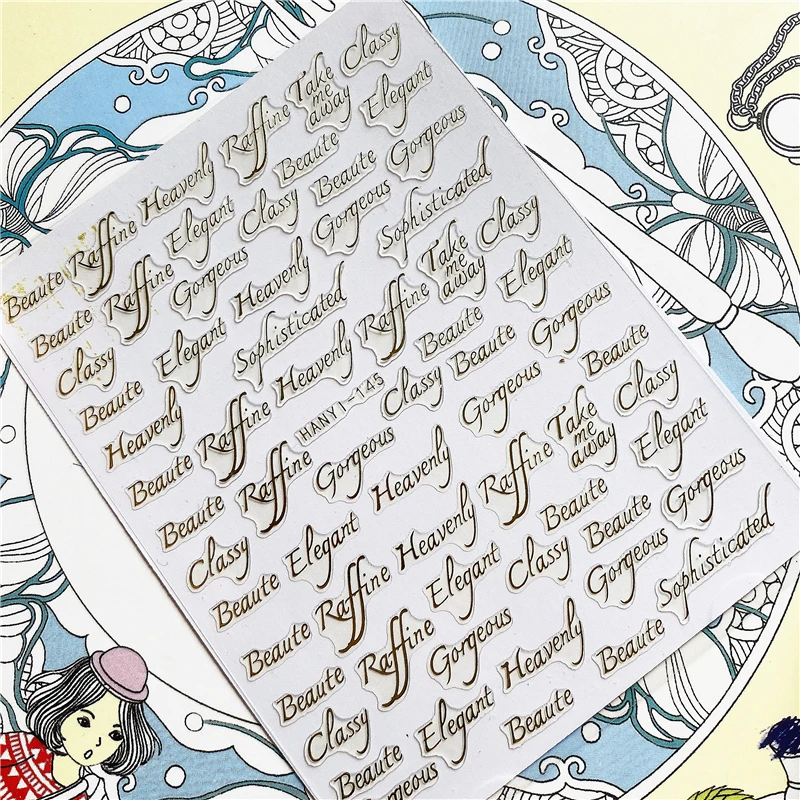 Beaute Raffine Heavenly Raffine Take me away Classy
Beaute Raffine Elegant Classy Beaute Elegant
Classy Gorgeous Beaute Gorgeous
Beaute Elegant Heavenly Gorgeous Sophisticated
Heavenly Sophisticated Raffine Take me away Classy
Beaute Raffine Heavenly Beaute Elegant
Beaute Raffine HANYI-143 Classy Beaute Gorgeous
Classy Gorgeous Gorgeous Beaute
Beaute Elegant Heavenly Raffine Take me away Classy
Beaute Raffine Heavenly Beaute Elegant
Beaute Raffine Elegant Classy Beaute Gorgeous
Classy Gorgeous Gorgeous Sophisticated
Beaute Elegant Heavenly Beaute
Gorgeous Beaute